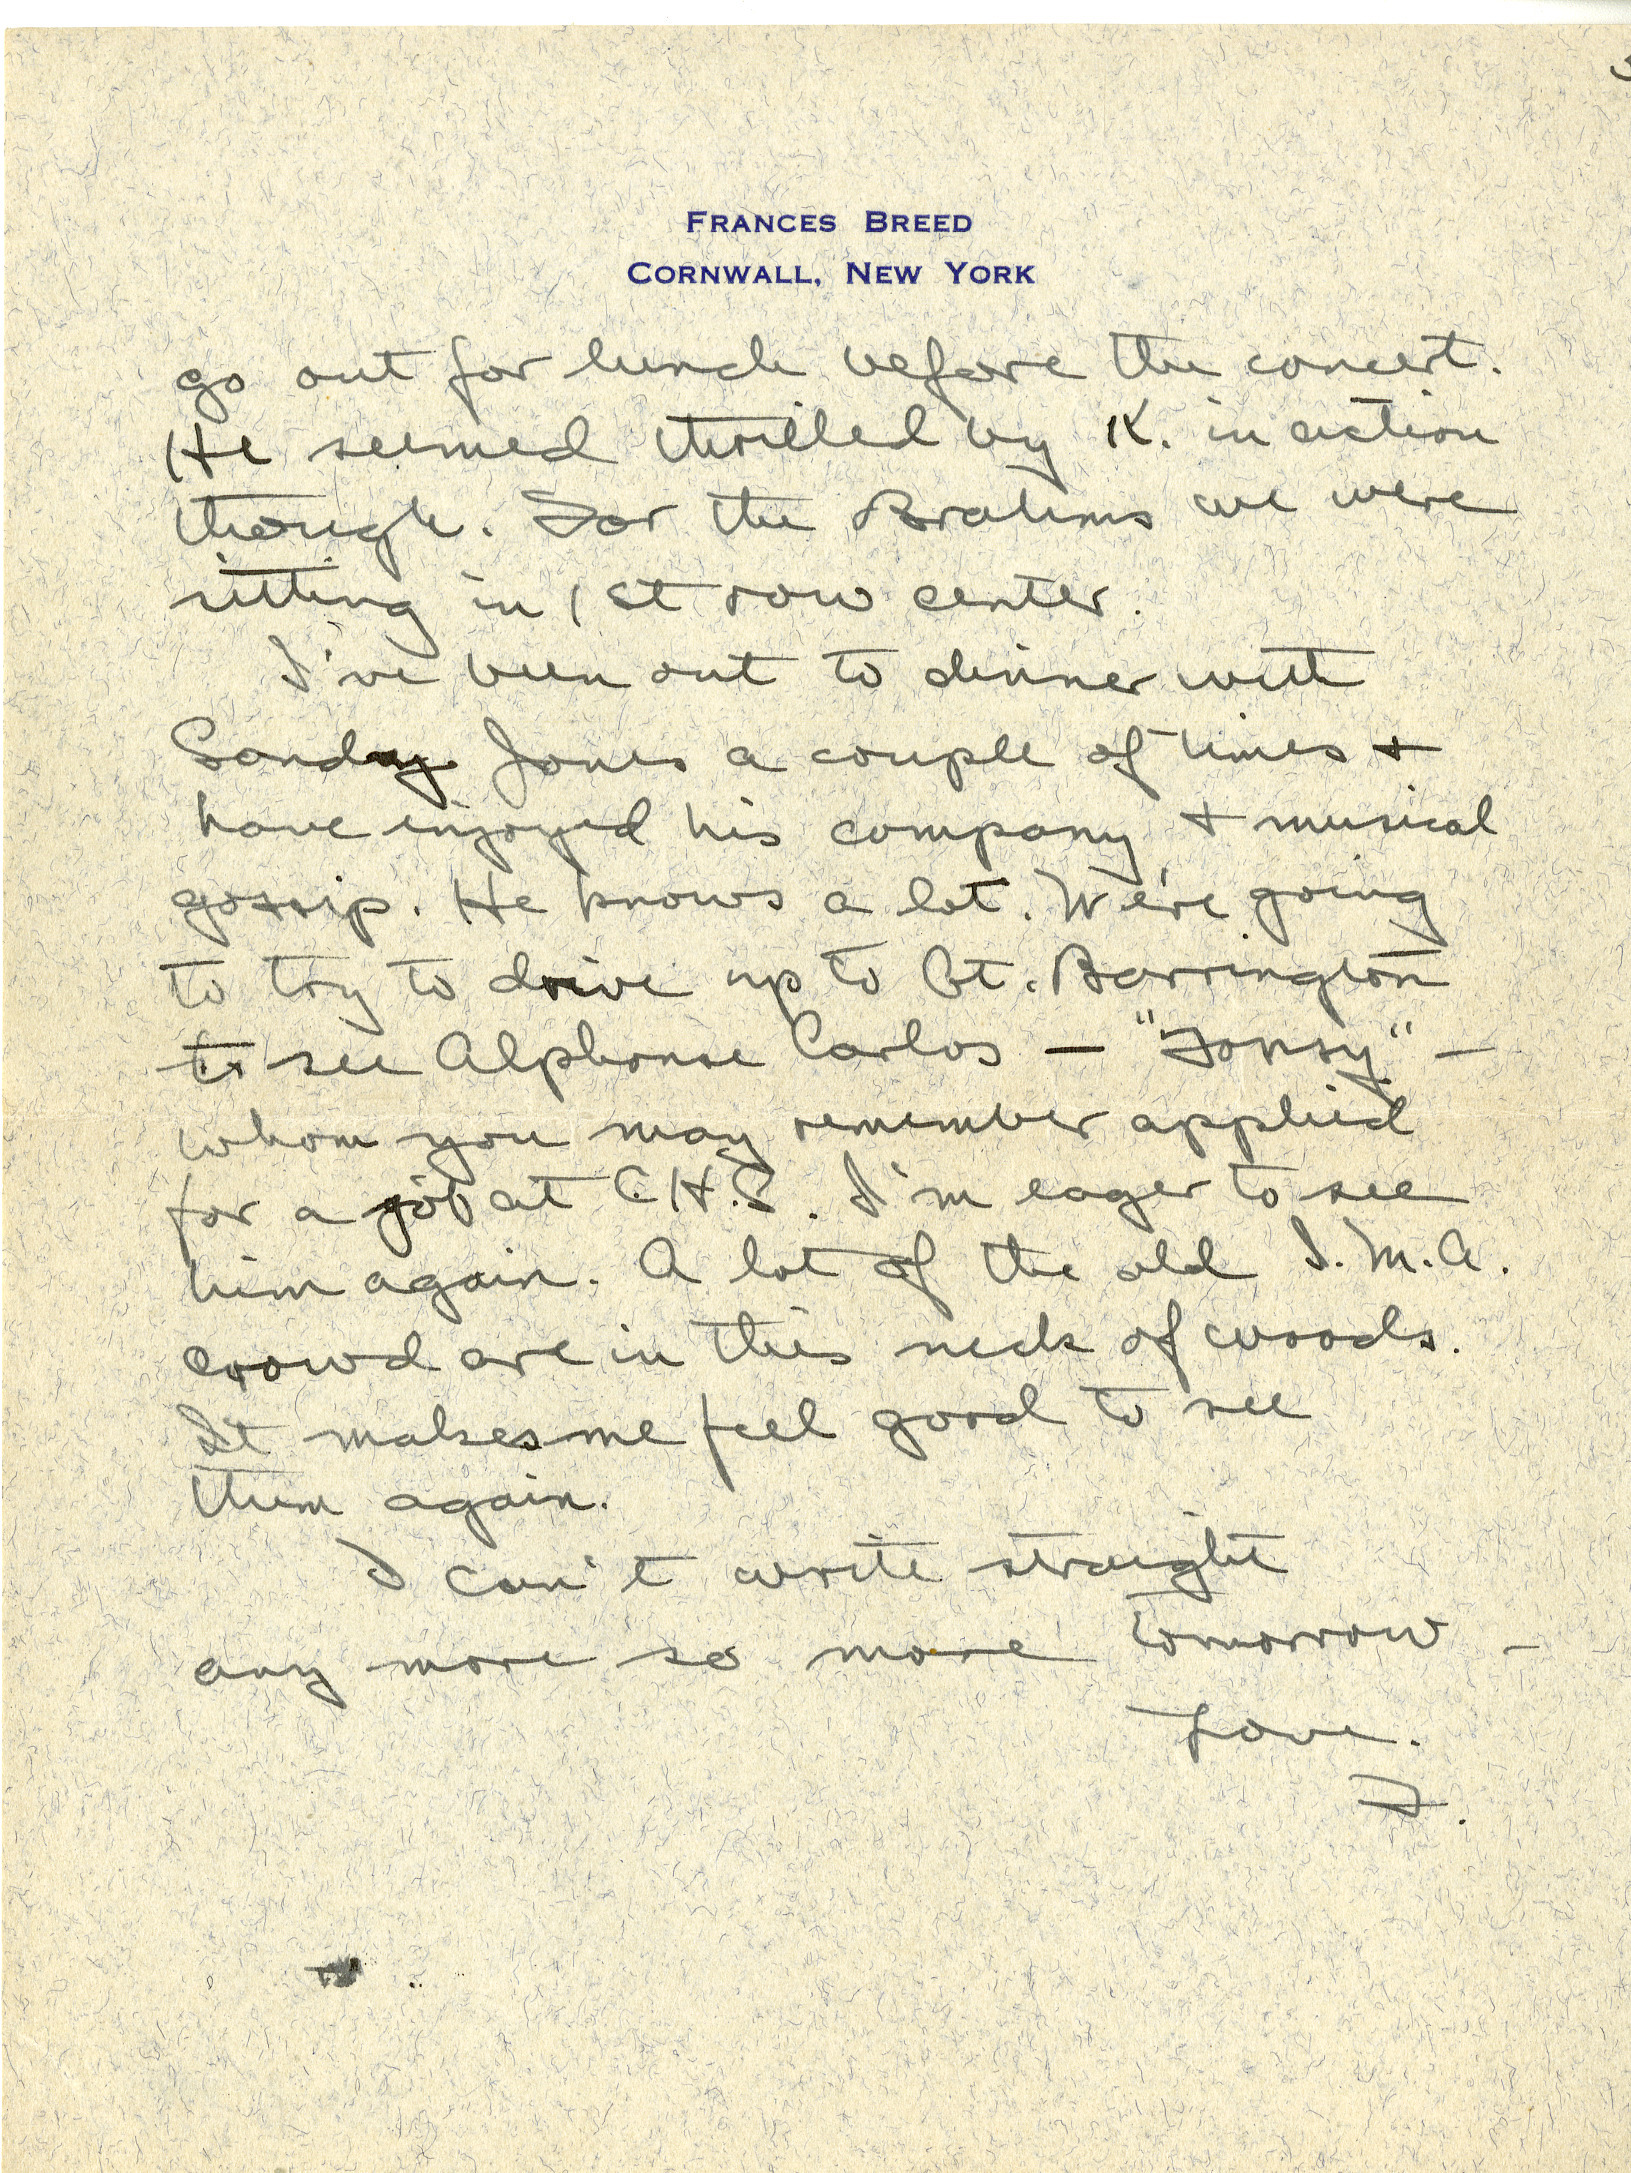 FRANCES BREED
CORNWALL, NEW YORK
go out for lunch before the concert.
He seemed thrilled by K. in action
though. For the Brahms we were
sitting in 1st row center.
I've been out to dinner with
Sandy Jones a couple of times +
have enjoyed his company + musical
gossip. He knows a lot. We're going
to try to drive up to Gt. Barrington
to see Alphonse Carlos — "Fonsy" —
whom you may remember applied
for a job at C.H.S. I'm eager to see
him again. A lot of the old I.M.A.
crowd are in this neck of woods.
It makes me feel good to see
them again.
I can't write straight
any more so more tomorrow –
Love.
F.